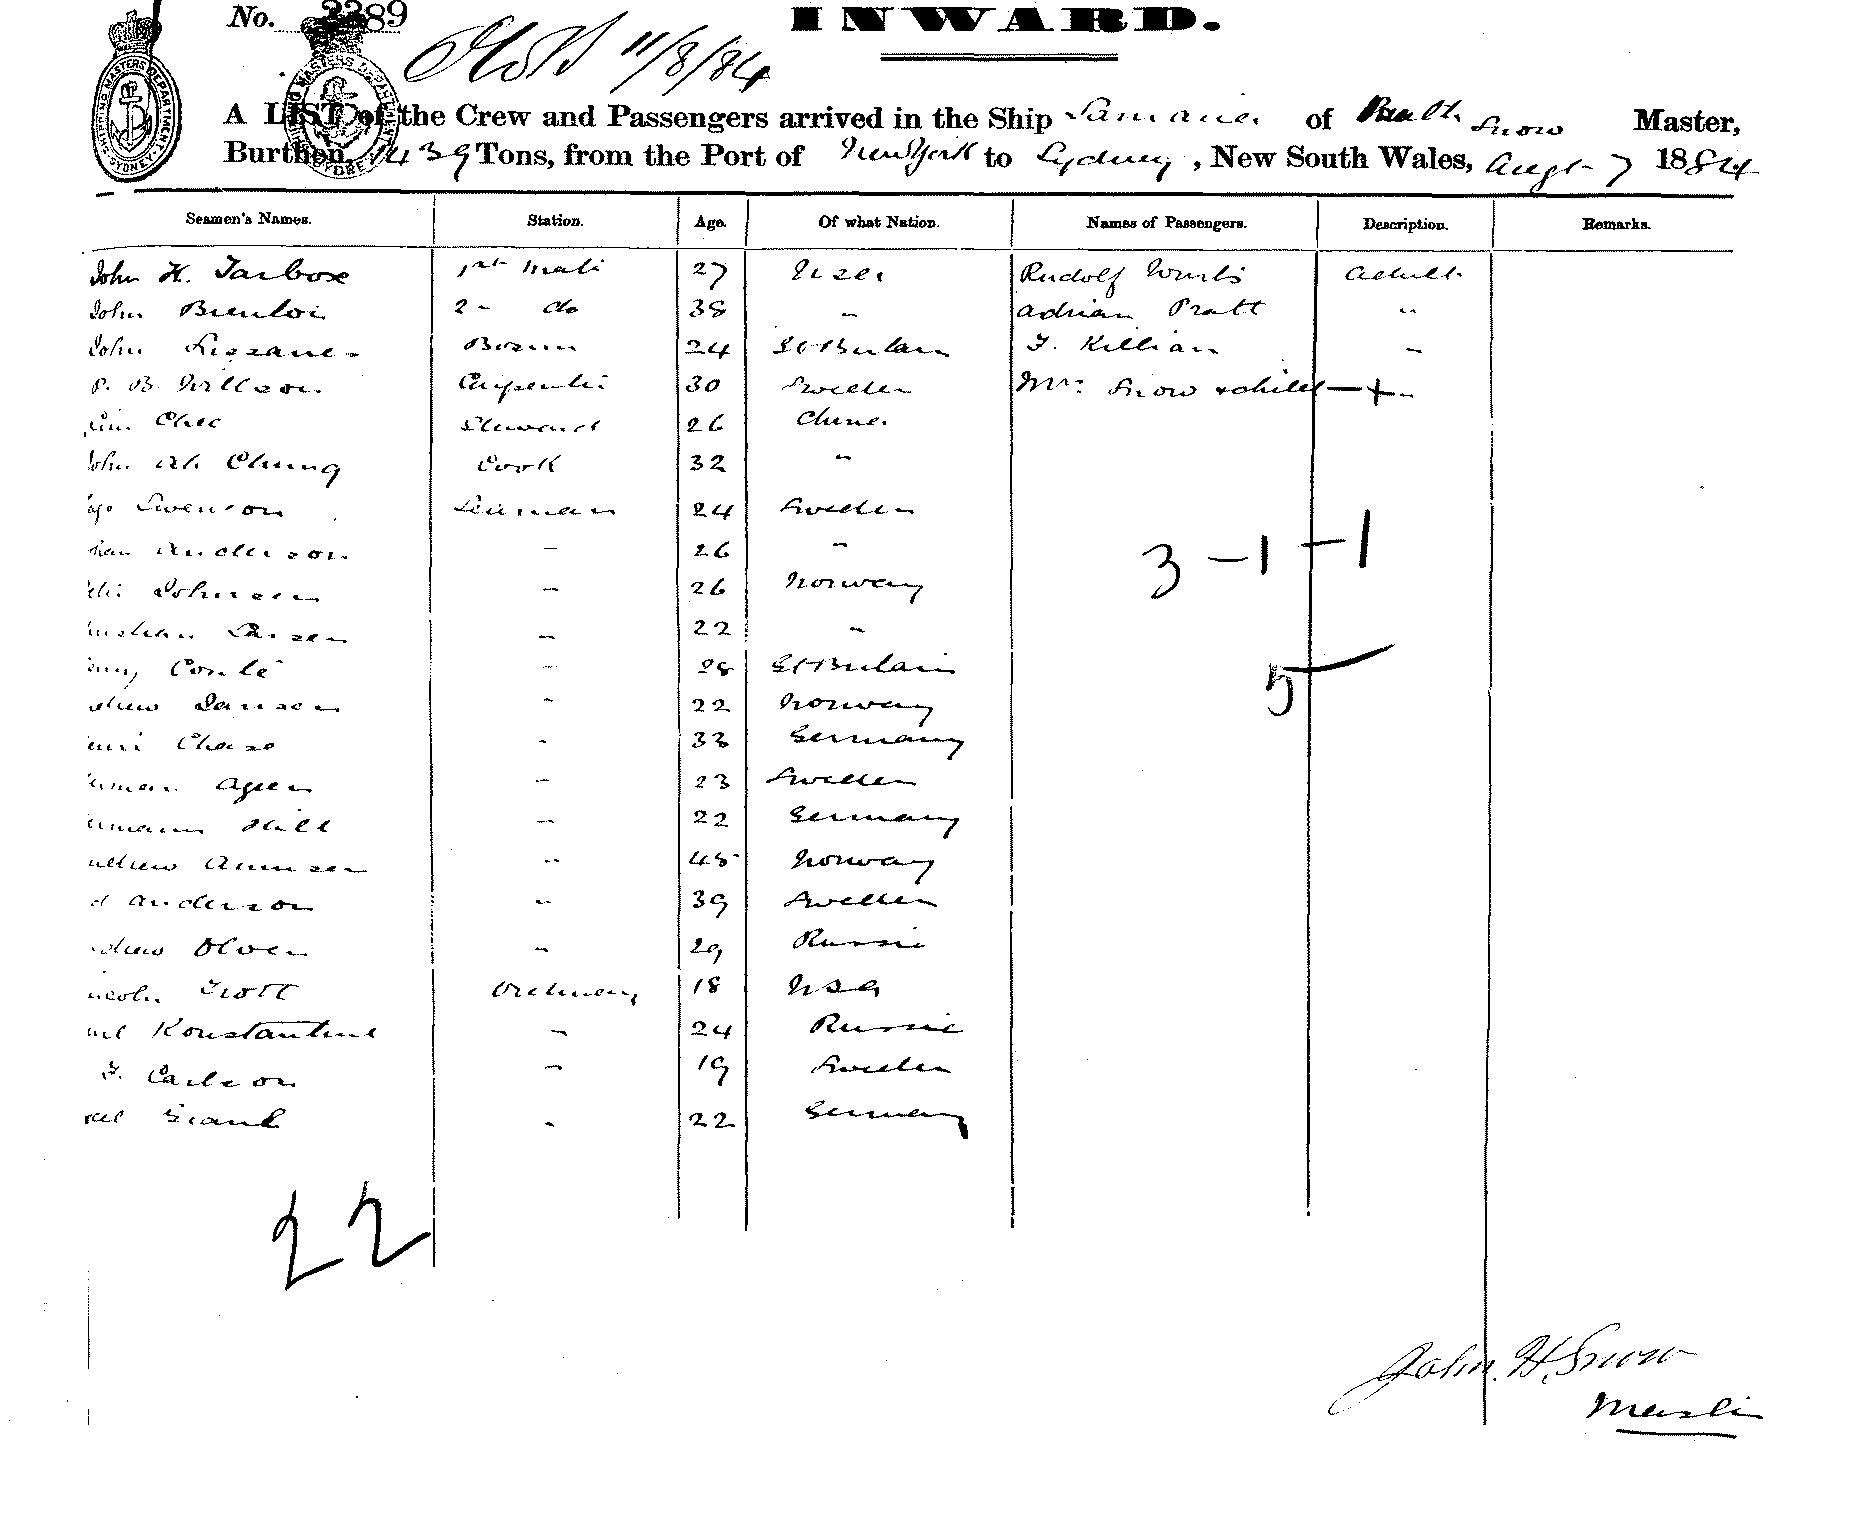 No. 2389
INWARD.
11/8/84
A LIST of the Crew and Passengers arrived in the Ship Samaria of Bath Snow Master,
Burthen, 1439 Tons, from the Port of New York to Sydney, New South Wales, Augt 7 1884
Seamen's Names. Station. Age. Of what Nation. Names of Passengers. Description. Remarks.
John H. Tarbox 1st Mate 27 USA Rudolf Adult
John 2 - do 38 " Adrian Pratt "
John Bosun 24 Gt Britain F. Killian "
P. B. Willson Carpenter 30 Sweden Mrs Snow & child
Chee Steward 26 China
John Ah Chung Cook 32 "
Swenson Seaman 24 Sweden
Anderson " 26 "
Johnsen " 26 Norway
Larsen " 22 "
" 28 Gt Britain
Jansen " 22 Norway
3 - 1 - 1
5
Chase " 33 Germany
" 23 Sweden
Hill " 22 Germany
" 45 Norway
Anderson " 39 Sweden
Olsen " 29 Russia
Trott Ordinary 18 USA
Konstantine " 24 Russia
F. Carlson " 19 Sweden
" 22 Germany
22
John H. Snow
Master